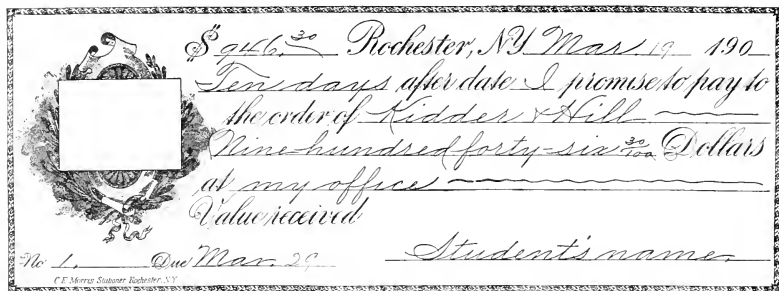 $ 946.30 Rochester, N.Y. Mar. 19 190
Ten days after date I promise to pay to
the order of Kidder & Hill
Nine hundred forty-six 30/100 Dollars
at my office
Value received
No 1. Due Mar. 29 Student's name.
C.E. Morris Stationer Rochester, N.Y.